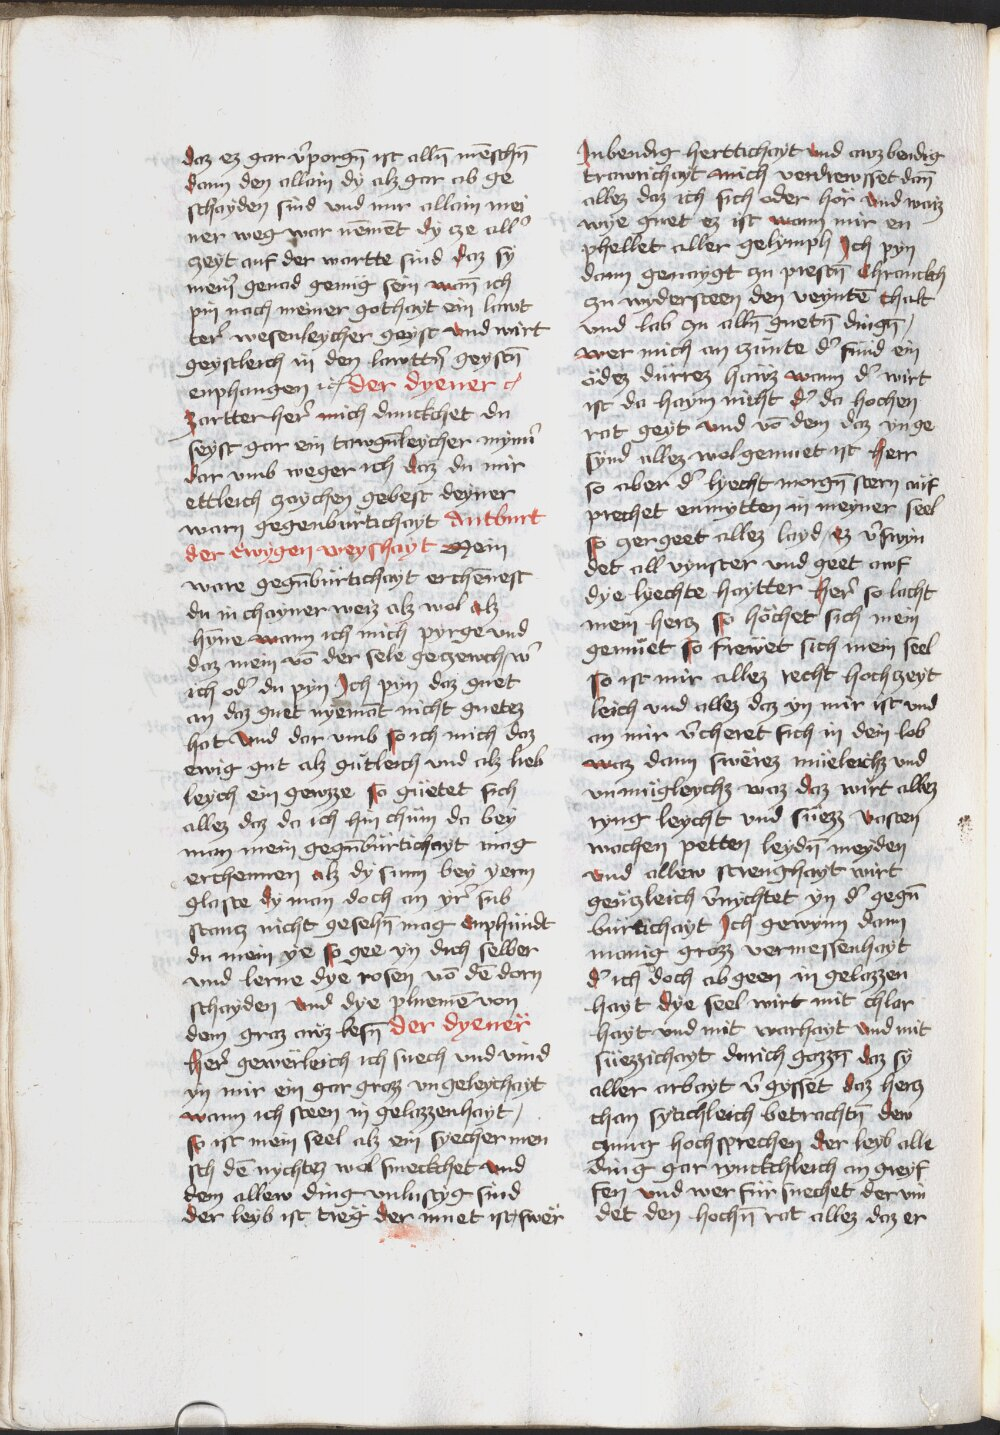 daz ez gar v̉porgn̄ ist alln̄ mēschn̄
dann den allain dy alz gar ab ge
schayden sind vnd mir allain mei
ner weg war nēmēt dy cze all̉
czeyt auf der wartte sind daz sy
mein̉ genad genüg sein wan̄ ich
pin nach meiner gothayt ein lawt
ter̉ wesenleycher geyst vnd wirt
geystleich in den lawttn̄ geystn̄
enphangen der dyener
Zartter her̉ mich dunckchet du
seyst gar ein tawgn̄leycher mynn̉
dar vmb weger ich daz du mir
ettleich czaychen gebest deyner
warn gegenbürtichayt Antburt
der ewygen weyshayt Mein
ware gegn̄bürtichayt erchēnest
du in chayner weiz alz wol alz
hyne wann ich mich pyrge vnd
daz mein vō der sele geczewch / w̉
ich od̉ du pyn Ich pyn daz guet
an daz guet nyemāt nicht guetez
hat vnd dar vmb so ich mich daz
ewig gut alz gütleich vnd alz lieb
leych ein gewzze so güetet sich
allez daz da ich hin chüm da bey
man mein gegn̄bürtichayt mag
erchennen alz dy sunn bey yerm
glaste dy man doch an yr̉ sub
stancz nicht gesehn̄ mag enphündt
du mein ye so gee yn dich selber
vnd lerne dye rosen vō dē dorn
schayden vnd dye pluemē von
dem graz awz lesn̄ der dyener
Her̉ gewerleich ich suech vnd vind
yn mir ein gar grozz vngeleychayt
wann ich steen in gelazzenhayt /
so ist mein seel alz ein syecher men
sch dē nychtez wol smeckchet vnd
dem allew ding vnlustyg sind
der leyb ist treg der muet ist swer
Inbendig herttichayt vnd awzbendig
trawrichayt mich verdrewsset dan̄
allez daz ich sich oder hör vnd waiz
wye guet ez ist wann mir en
phellet aller gelymph Ich pyn
dann genaygt zu prestn̄ chranckch
zu wydersteen den veyntē chalt
vnd lab zu alln̄ guetn̄ dingn̄ /
wer mich an czünte d̉ find ein
ödez dürrez hawz wann d̉ wirt
ist da haym nicht d̉ da hochen
rat geyt vnd vō dem daz ynge
synd allez wolgemuet ist Herr
so aber d̉ lyecht morgn̄ stern auf
prechet enmytten in meyner seel
so zergeet allez layd / ez v̉swin
det all vynster vnd geet awf
dye lyechte haytter Her̉ so lacht
mein hercz so höchet sich mein
gemüet so frewet sich mein seel
so ist mir allez recht hochczeyt
leich vnd allez daz yn mir ist vnd
an mir v̉cheret sich in dein lob
waz dann swerez müeleichz vnd
vnmügleychz waz daz wirt allez
ryng leycht vnd süezz vasten
wachen petten leydn̄ meyden
vnd allew strenghayt wirt
genczleich v̉nychtet yn d̉ gegn̄
bürtichayt Ich gewynn dann
manig grozz vermessenhayt
d̉ ich doch abgeen in gelazzen
hayt dye seel wirt mit chlar
hayt vnd mit warhayt vnd mit
süezzichayt durich gozzn daz sy
aller arbayt v̉gysset daz hercz
chan sytichleich betrachtn̄ dew
czung hoch sprechen der leyb alle
ding gar rynckchleich an greyf
fen vnd wer für suechet der vin
det den hochn̄ rat allez daz er